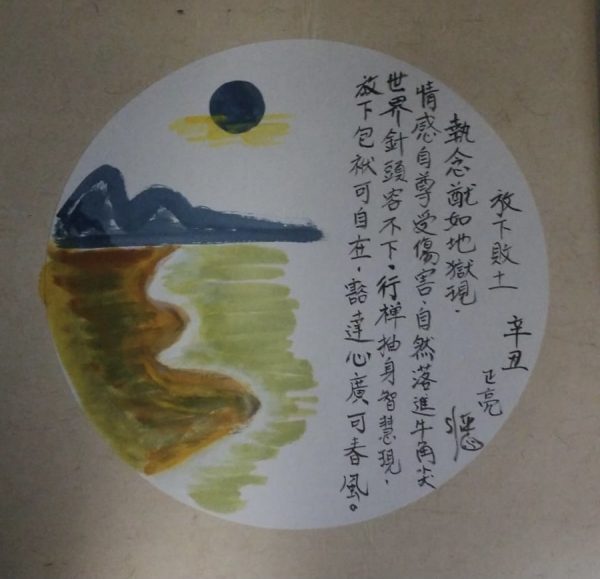 放下敗土
辛丑
正亮
執念猷如地獄現，
情感自尊受傷害，自然落進牛角尖
世界針頭容不下。行禅抽身智慧現，
放下包袱可自在，豁達心廣可春風。